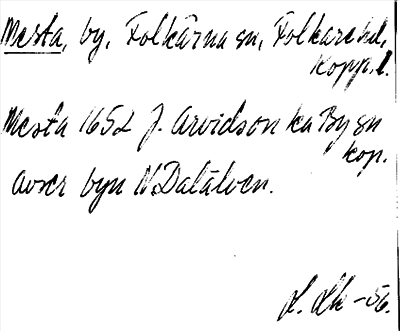 Mesta, by, Folkärna sn, Folkare hd,
Kopp. l.
Mesta 1652 J. Arvidson ka By sn
kop.
Avser byn N Dalälven.